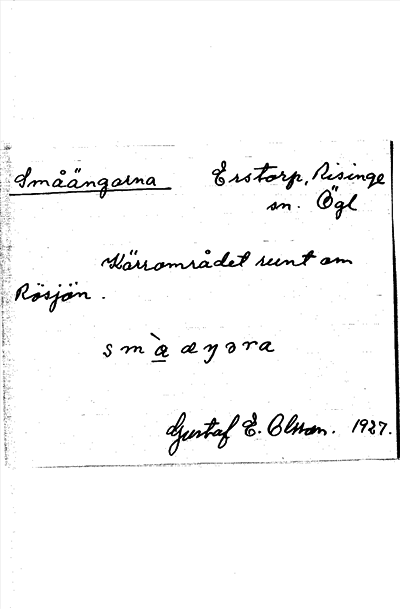 Småängarna Erstorp, Risinge
sn. Ögl
Kärrområdet runt om
Rösjön.
smæ̀ æŋəra
Gustaf E. Olsson. 1927.